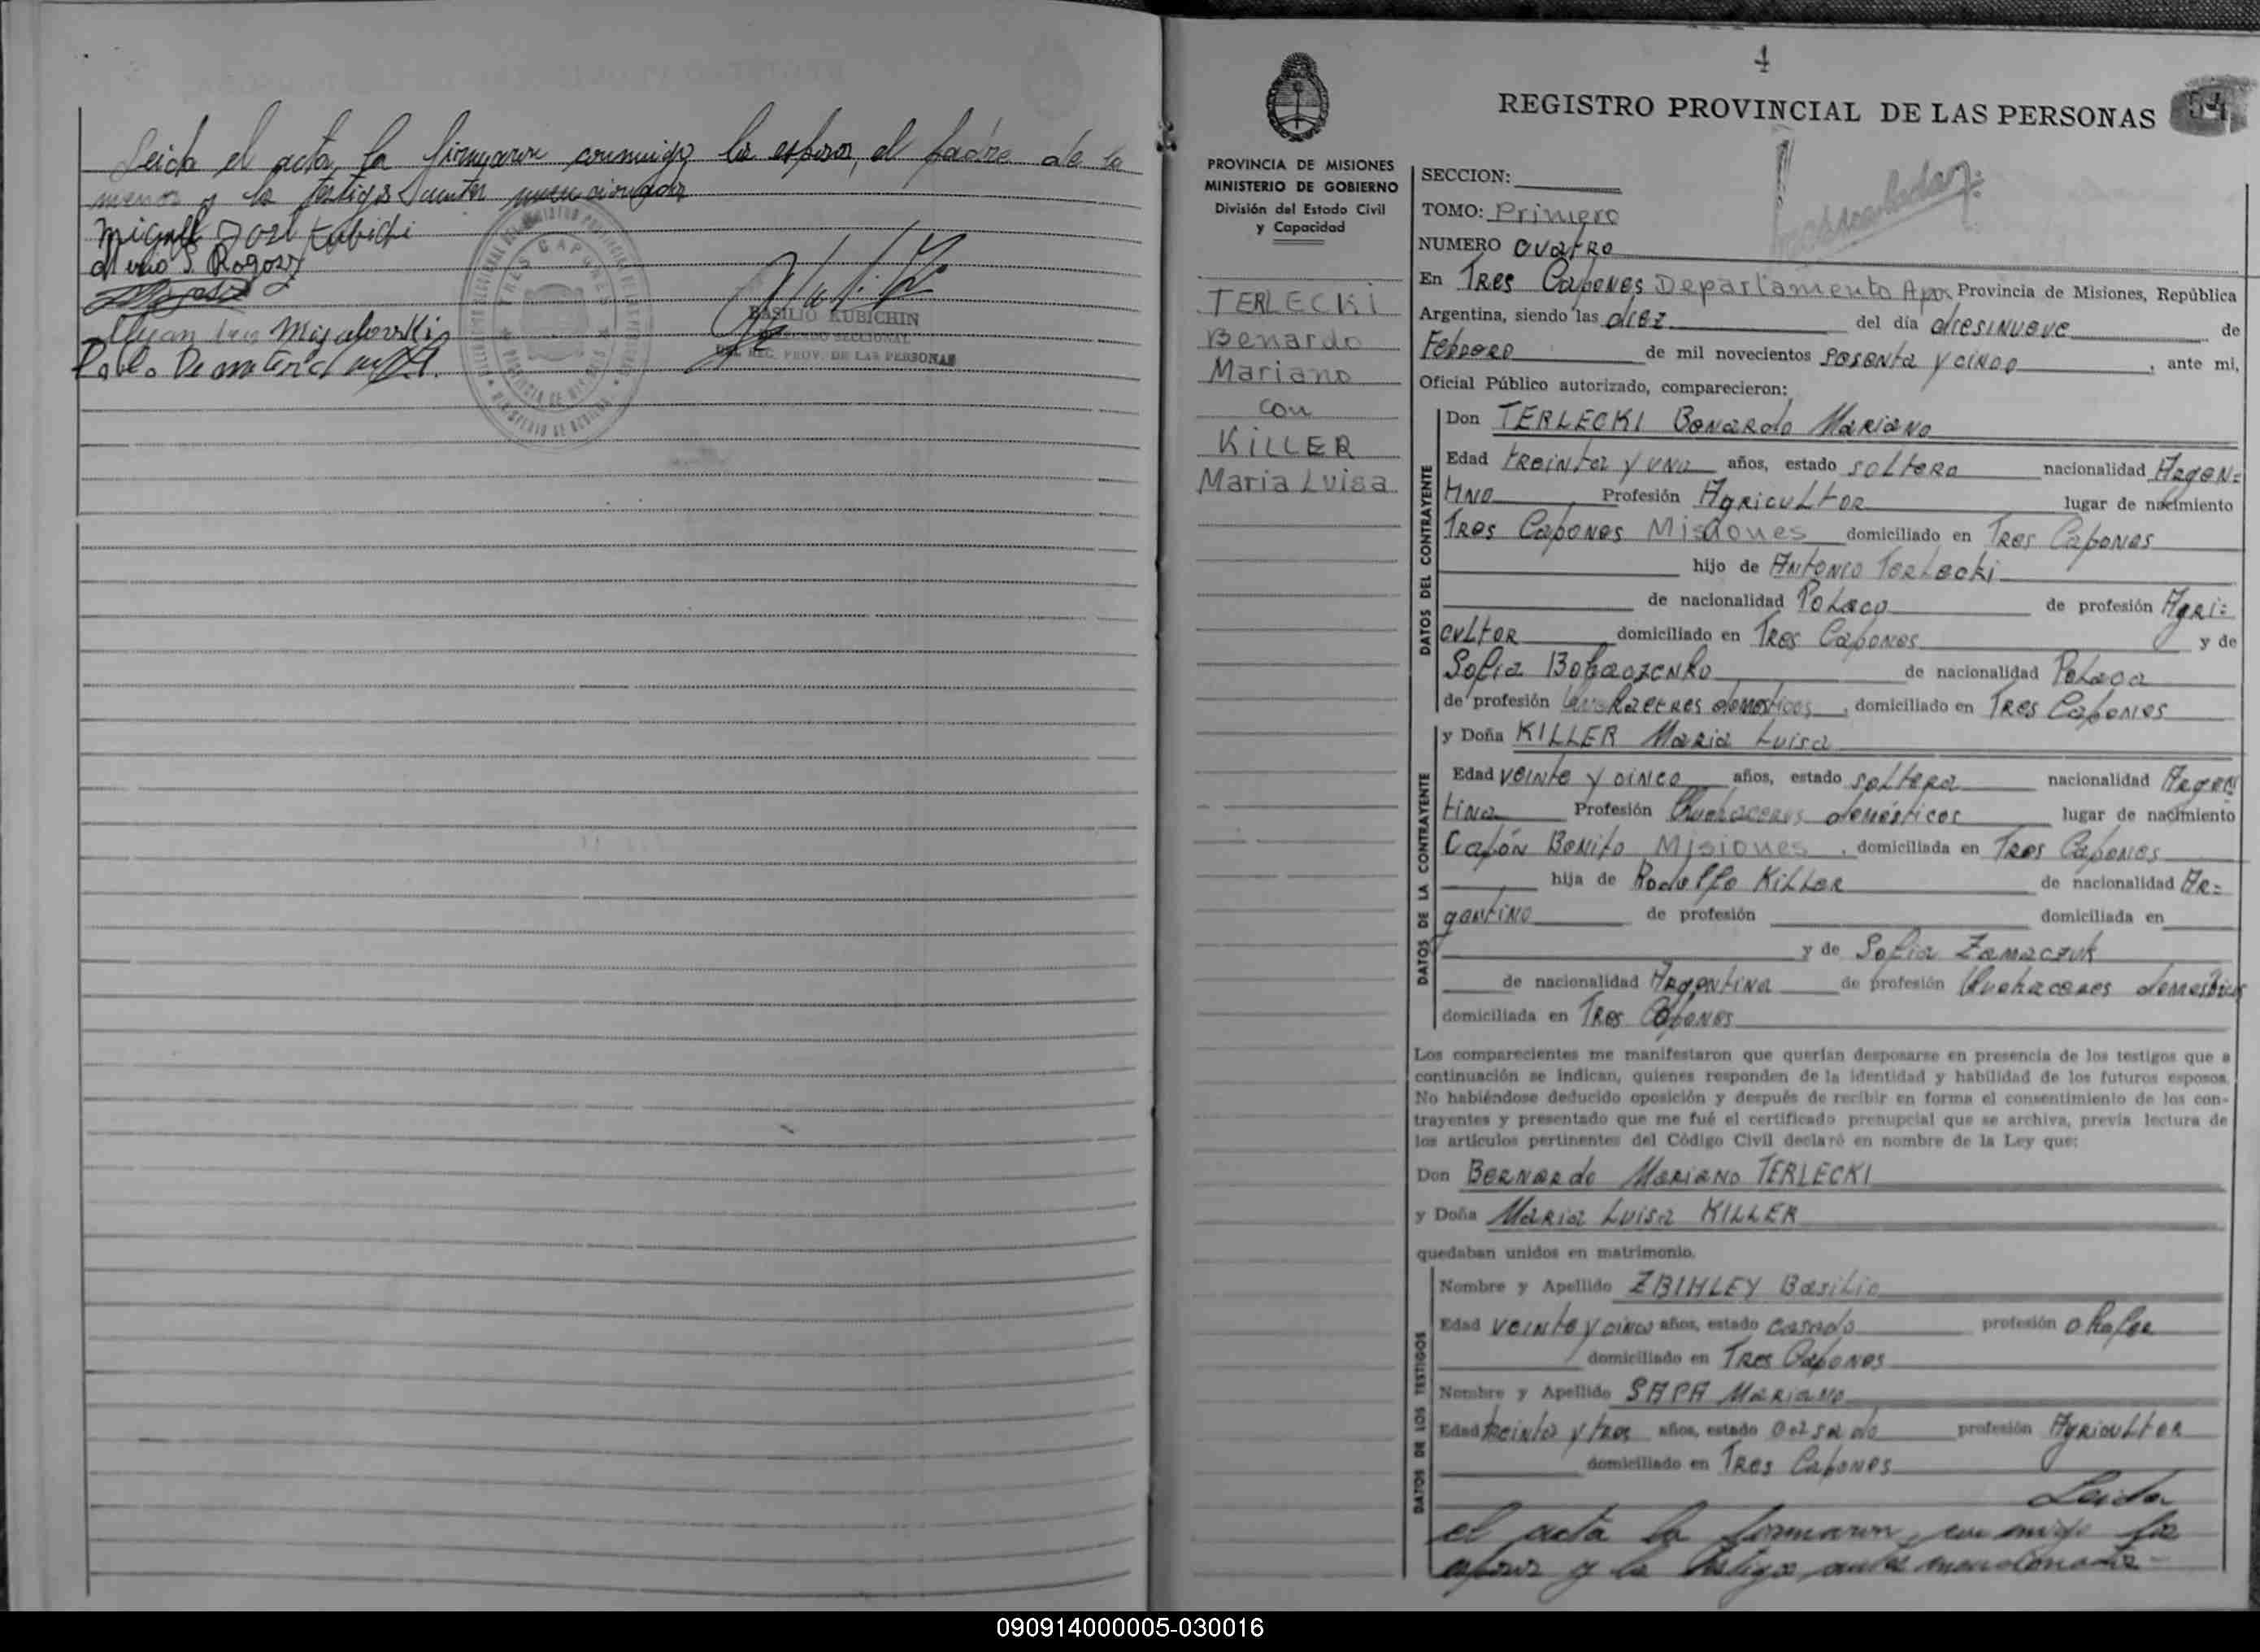 Leida el acta, la firmaron conmigo los esposos, el padre de la
menor y los testigos antes mencionados
Miguel José Kubichi
S. Rogozy
Misalovski
Pablo
TRES CAPONES
BASILIO KUBICHIN
SECCIONAL
DEL REG. PROV. DE LAS PERSONAS
4
REGISTRO PROVINCIAL DE LAS PERSONAS
PROVINCIA DE MISIONES
MINISTERIO DE GOBIERNO
División del Estado Civil
y Capacidad
TERLECKI
Benardo
Mariano
con
KILLER
Maria Luisa
SECCION:
TOMO: Primero
NUMERO CUATRO
En Tres Capones Departamento Apos Provincia de Misiones, República
Argentina, siendo las diez del día diesinueve de
Febrero de mil novecientos sesenta y cinco, ante mi,
Oficial Público autorizado, comparecieron:
DATOS DEL CONTRAYENTE
Don TERLECKI Benardo Mariano
Edad treinta y uno años, estado soltero nacionalidad Argen=
tino Profesión Agricultor lugar de nacimiento
Tres Capones Misiones domiciliado en Tres Capones
hijo de Antonio Terlecki
de nacionalidad Polaco de profesión Agri=
cultor domiciliado en Tres Capones y de
Sofia de nacionalidad Polaca
de profesión Quehaceres domesticos, domiciliado en Tres Capones
DATOS DE LA CONTRAYENTE
y Doña KILLER Maria Luisa
Edad veinte y cinco años, estado soltera nacionalidad Argen
tina Profesión Quehaceres domésticos lugar de nacimiento
Capón Bonito Misiones, domiciliada en Tres Capones
hija de Rodolfo Killer de nacionalidad Ar=
gentino de profesión domiciliada en
y de Sofia Zamaczuk
de nacionalidad Argentina de profesión Quehaceres domesticos
domiciliada en Tres Capones
Los comparecientes me manifestaron que querían desposarse en presencia de los testigos que a
continuación se indican, quienes responden de la identidad y habilidad de los futuros esposos.
No habiéndose deducido oposición y después de recibir en forma el consentimiento de los con-
trayentes y presentado que me fué el certificado prenupcial que se archiva, previa lectura de
los artículos pertinentes del Código Civil declaré en nombre de la Ley que:
Don Bernardo Mariano TERLECKI
y Doña Maria Luisa KILLER
quedaban unidos en matrimonio.
DATOS DE LOS TESTIGOS
Nombre y Apellido ZBIHLEY Basilio
Edad veinte y cinco años, estado casado profesión chofer
domiciliado en Tres Capones
Nombre y Apellido SAPA Mariano
Edad treinta y tres años, estado casado profesión Agricultor
domiciliado en Tres Capones
Leida
el acta la firmaron conmigo los
esposos y los testigos antes mencionados
090914000005-030016